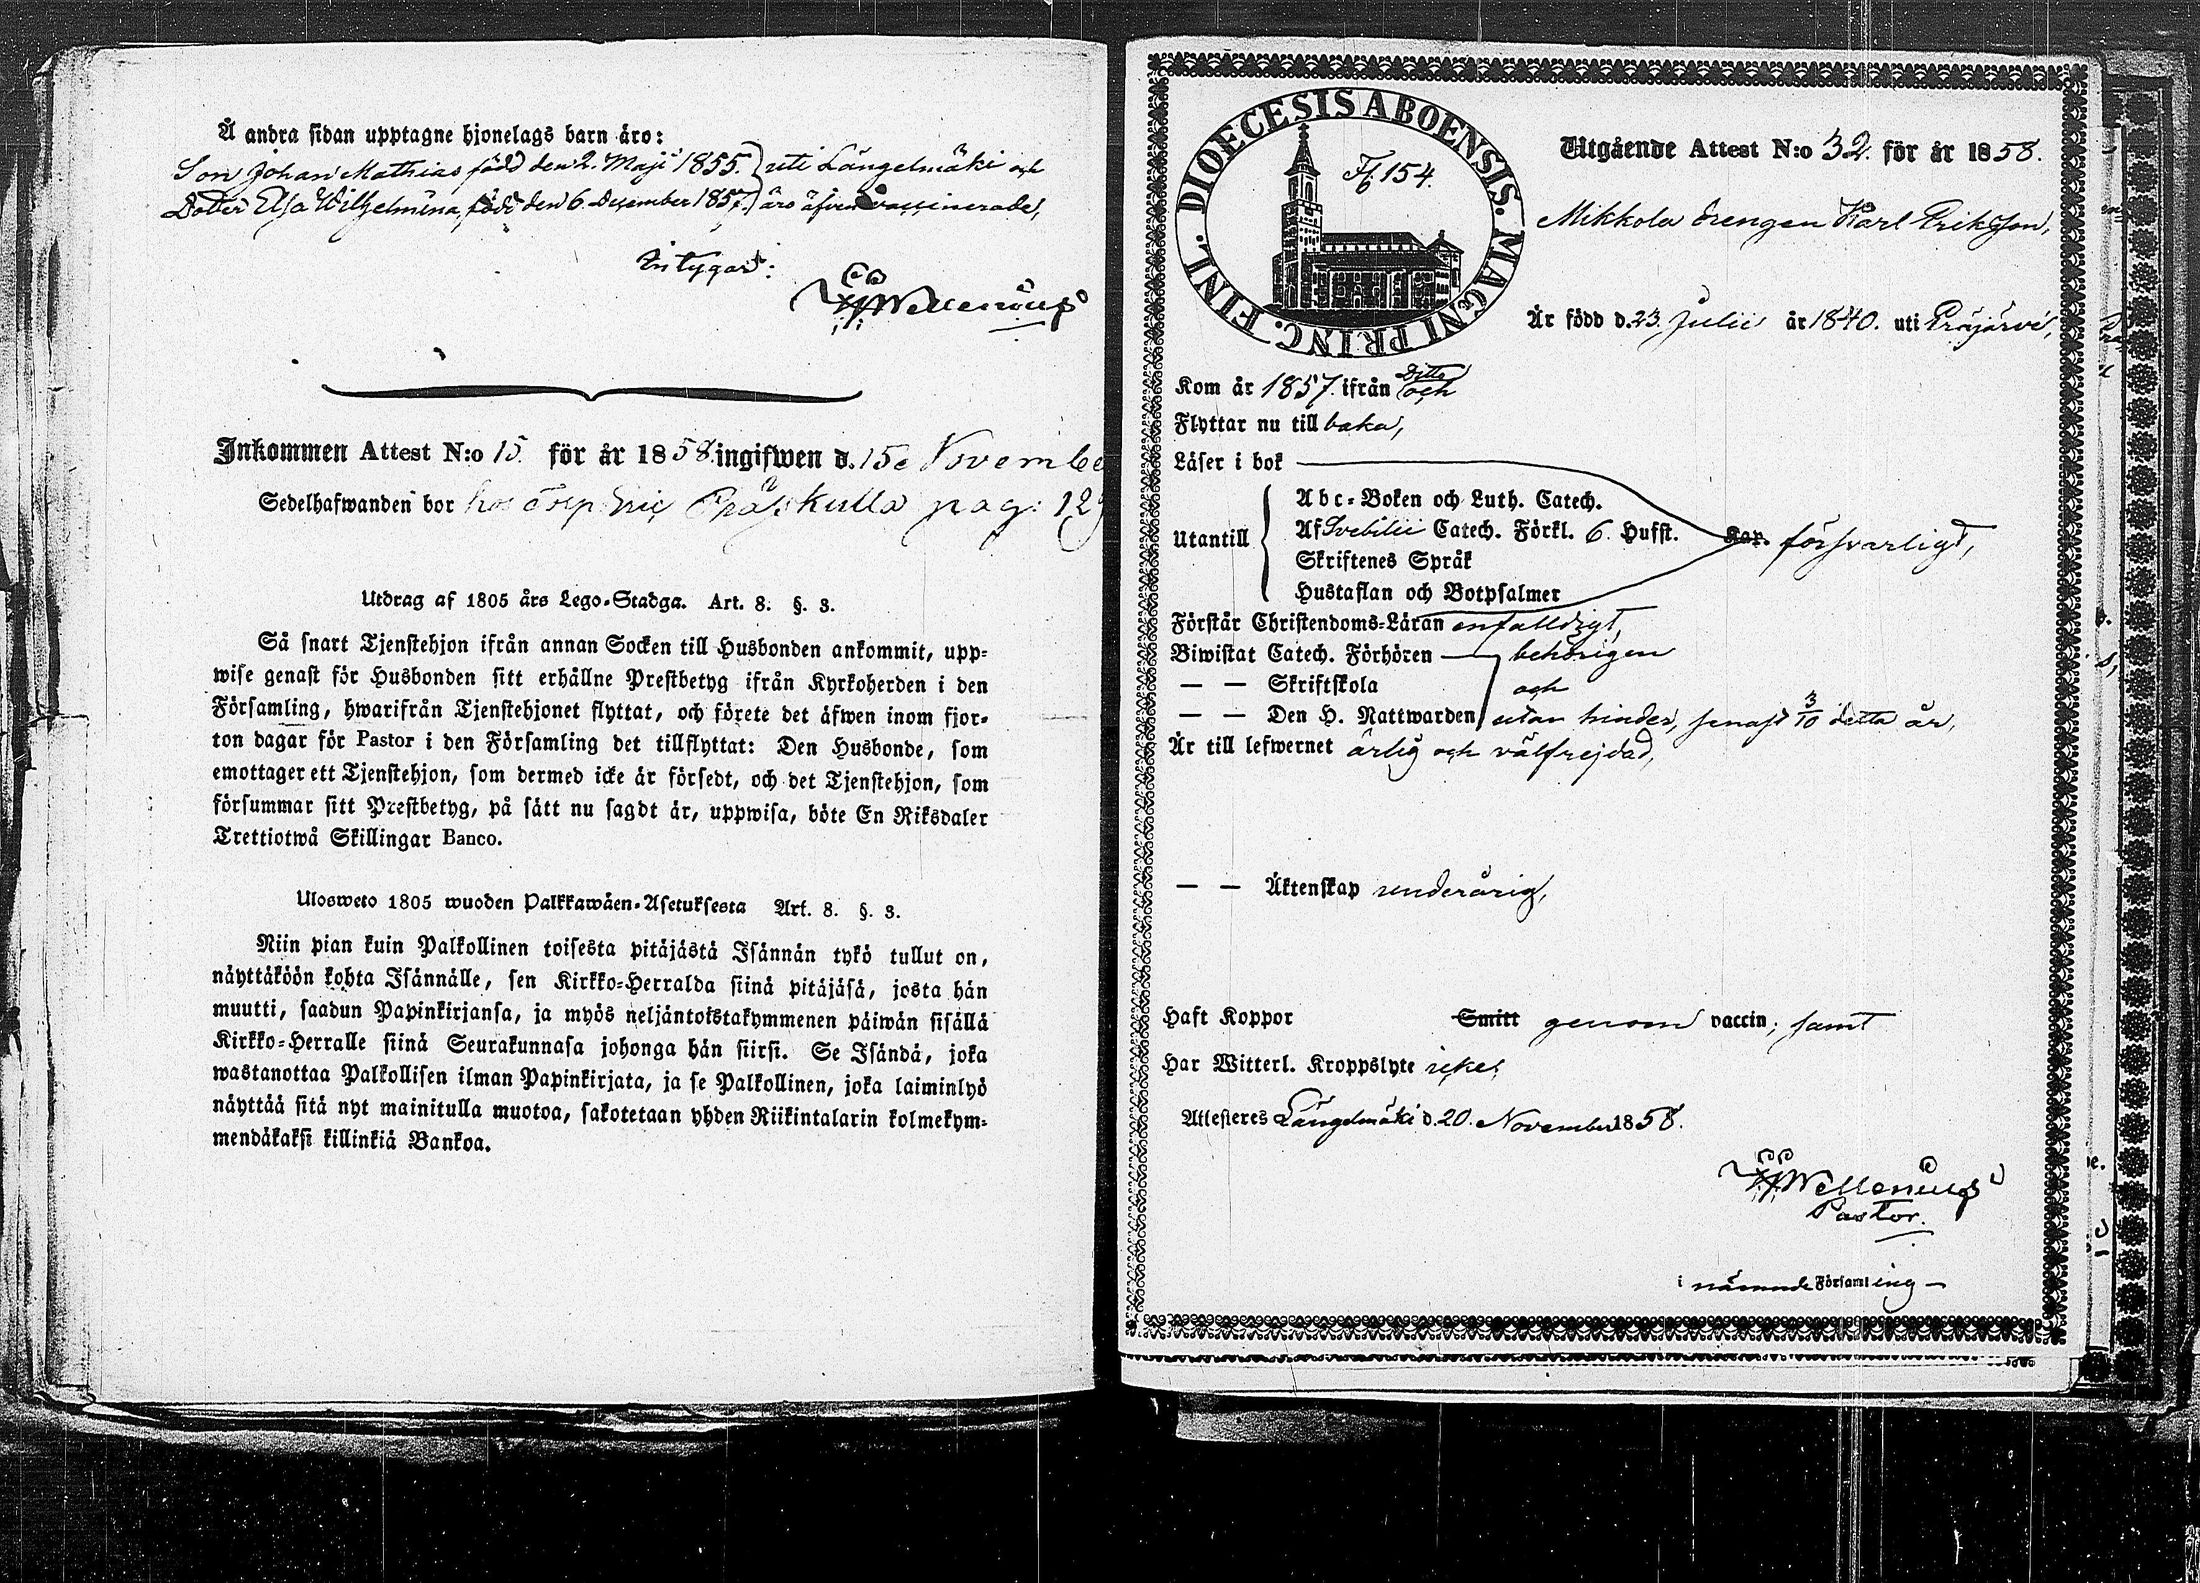 Å andra sidan upptagne hjonelags barn äro:
Son Johan Mathias född den 2. Maji 1855. } uti Längelmäki och
Dotter Elsa Wilhelmina, född den 6. December 1857. } äro äfven vaccinerade,
Intygar:
Wellenius
Inkommen Attest N:o 15 för år 1858. ingifwen d. 15e November
Sedelhafwanden bor hos Torp. Eric pag: 129
Utdrag af 1805 års Lego-Stadga. Art. 8. §. 3.
Så snart Tjenstehjon ifrån annan Socken till Husbonden ankommit, upp-
wise genast för Husbonden sitt erhållne Prestbetyg ifrån Kyrkoherden i den
Församling, hwarifrån Tjenstehjonet flyttat, och förete det äfwen inom fjor-
ton dagar för Pastor i den Församling det tillflyttat: Den Husbonde, som
emottager ett Tjenstehjon, som dermed icke är försedt, och det Tjenstehjon, som
försummar sitt Prestbetyg, på sätt nu sagdt är, uppwisa, böte En Riksdaler
Trettiotwå Skillingar Banco.
Ulosweto 1805 wuoden Palkkawäen-Asetuksesta Art. 8. §. 3.
Niin pian kuin Palkollinen toisesta pitäjästä Isännän tykö tullut on,
näyttäköön kohta Isännälle, sen Kirkko-Herralda siinä pitäjäsä, josta hän
muutti, saadun Papinkirjansa, ja myös neljäntoistakymmenen päiwän sisällä
Kirkko-Herralle siinä Seurakunnasa johonga hän siirsi. Se Isändä, joka
wastanottaa Palkollisen ilman Papinkirjata, ja se Palkollinen, joka laiminlyö
näyttää sitä nyt mainitulla muotoa, sakotetaan yhden Riikintalarin kolmekym-
mendäkaksi killinkiä Bankoa.
DIOECESIS ABOENSIS. MAGNI PRINC. FINL.
154.
Utgående Attest N:o 32. för år 1858.
Mikkola drengen Karl Eriksson,
Är född d. 23. Julii år 1840. uti Eräjärvi,
Kom år 1857. ifrån Ditto och
Flyttar nu till baka,
Läser i bok
Utantill { Abc-Boken och Luth. Catech.
Af Svebilii Catech. Förkl. 6. Hufst. Kap. försvarligt,
Skriftenes Språk
Hustaflan och Botpsalmer
Förstår Christendoms-Läran enfalldigt,
Biwistat Catech. Förhören — behörigen
— — Skriftskola och
— — Den H. Nattwarden utan hinder, senast 3/10 detta år,
Är till lefwernet ärlig och välfrejdad,
— — Äktenskap underårig,
Haft Koppor Smitt genom vaccin, samt
Har Witterl. Kroppslyte icke,
Attesteres Längelmäki d. 20. November 1858.
Wellenius
Pastor.
i nämnde Församling —